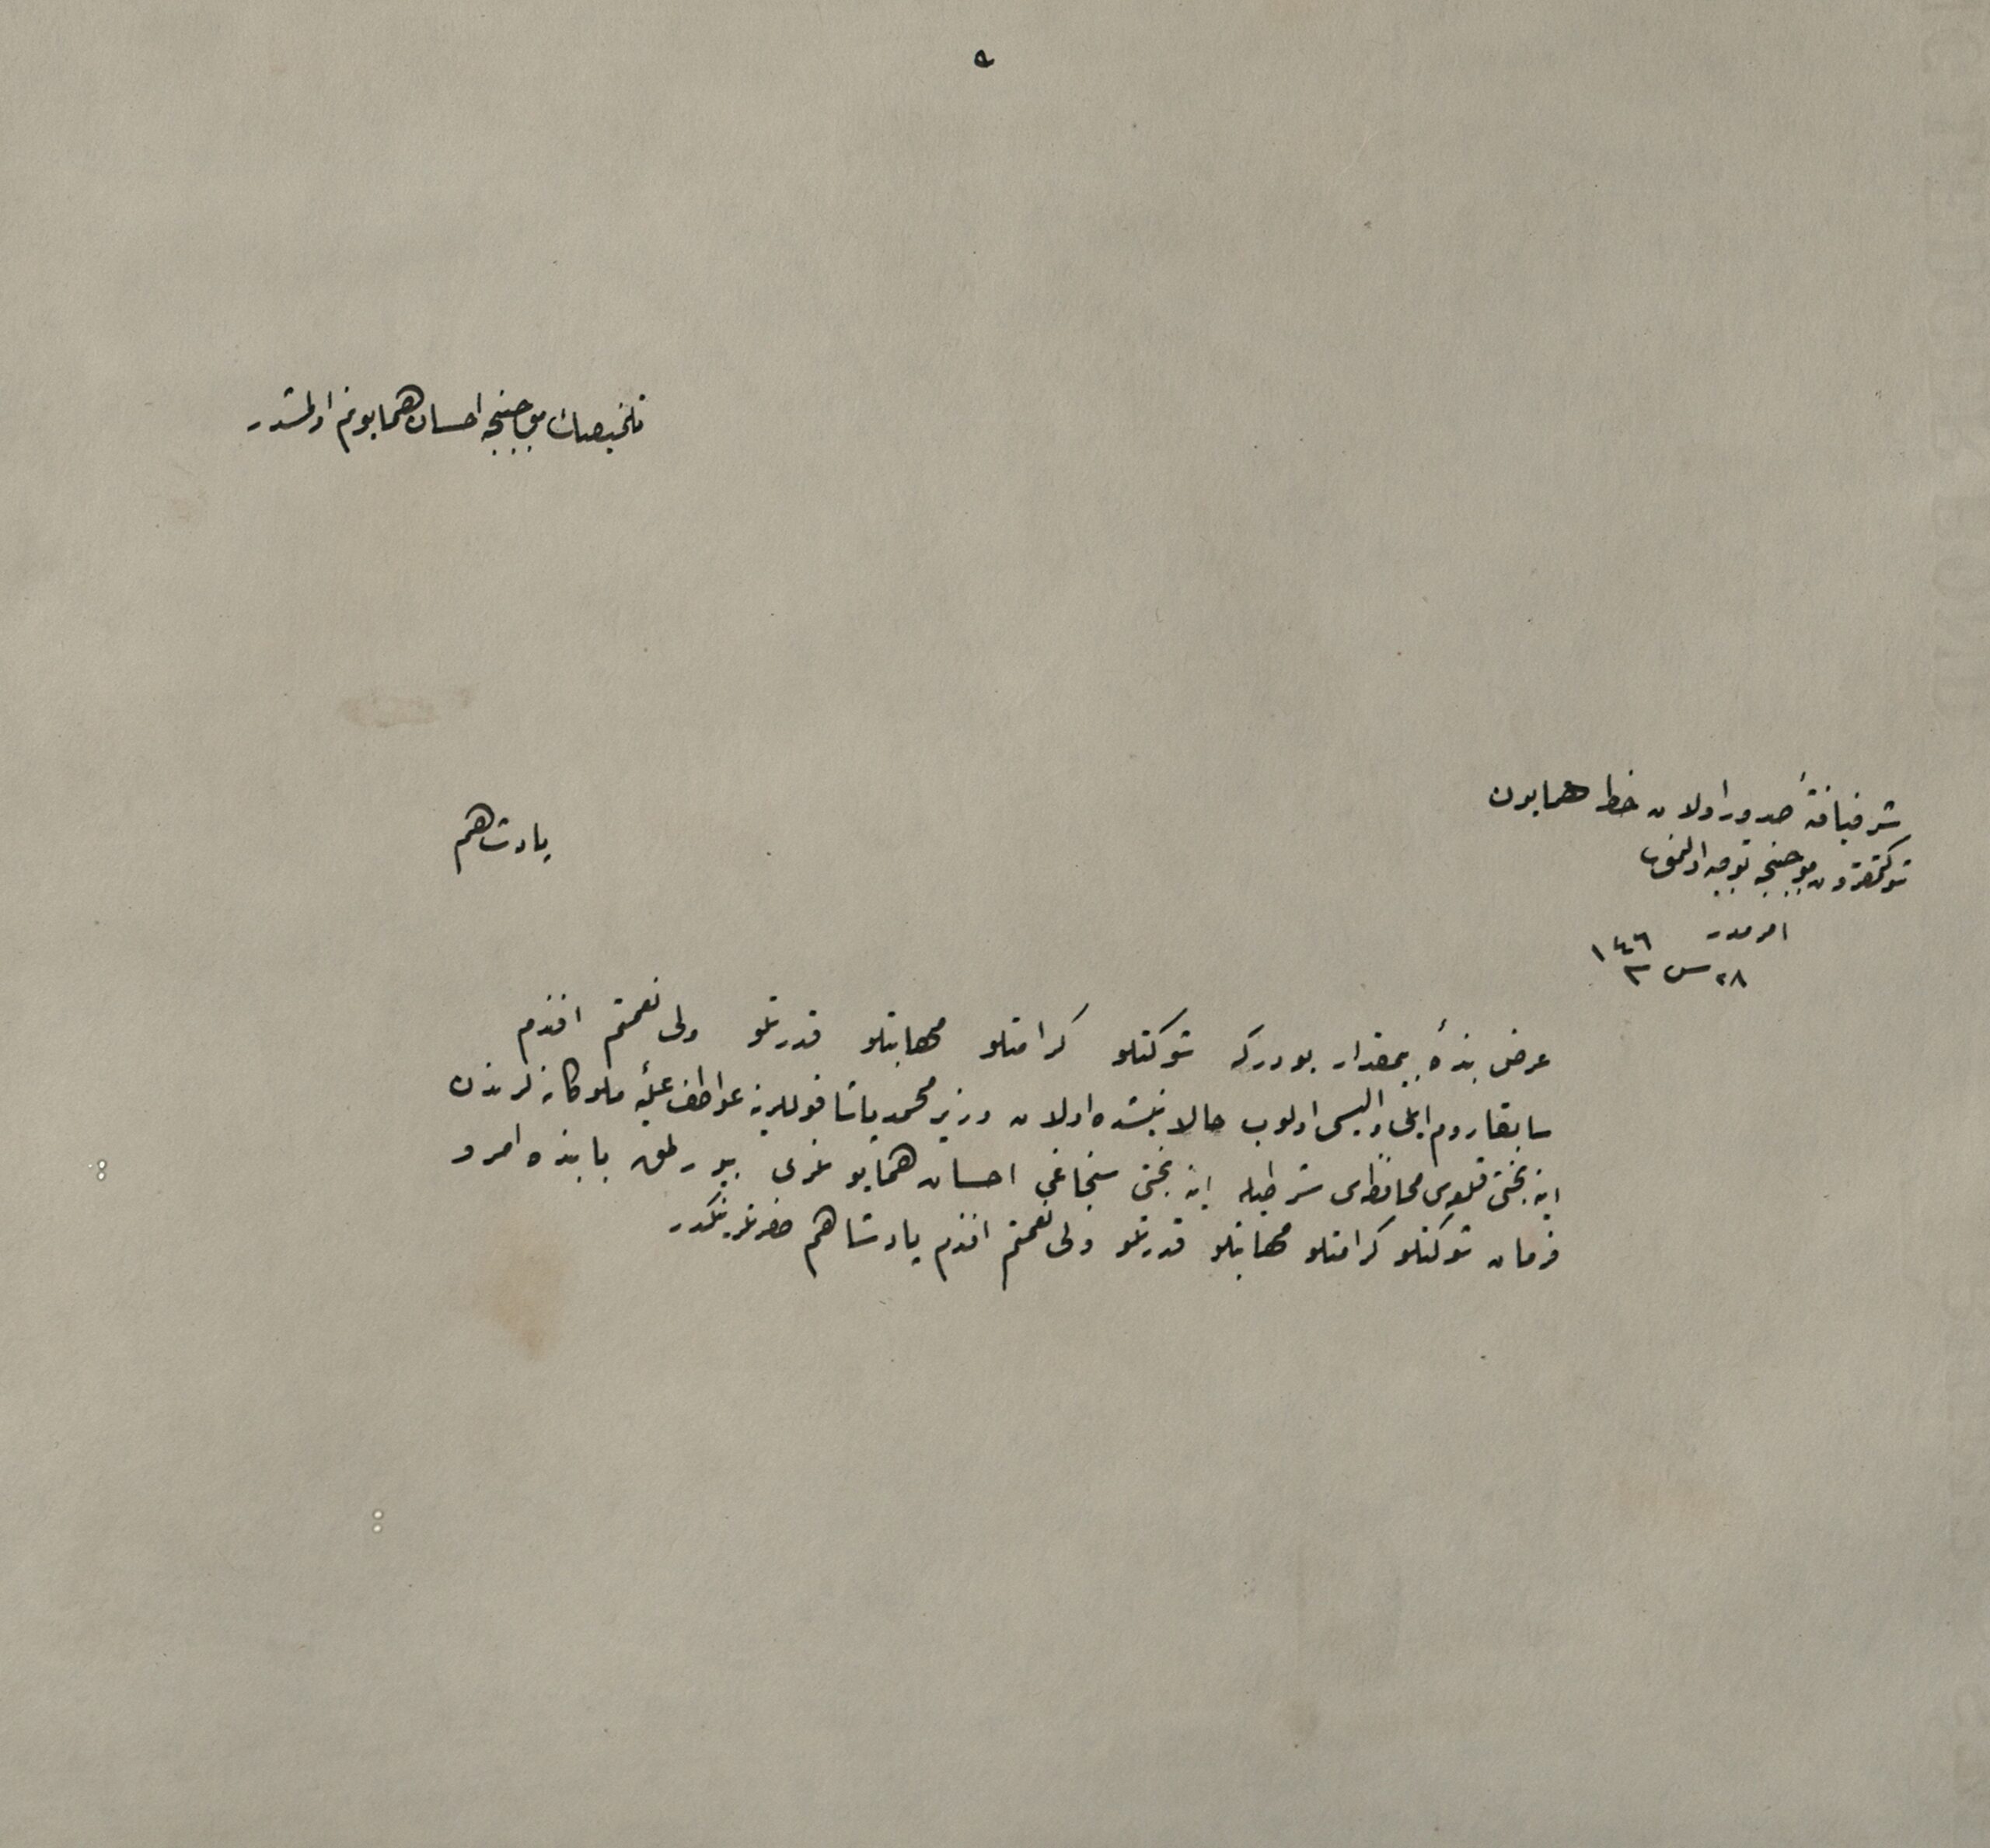 تلخیصك موجبنجه احسان همایونم اولمشدر
شرفیافتهٔ صدور اولان خط همایون
شوكتمقرون موجبنجه توجیه اولنمق
امرمدر
٢٨ س ١٤٦
پادشاهم
عرض بندهٔ بیمقدار بودركه شوكتلو كرامتلو مهابتلو قدرتلو ولی نعمتم افندم
سابقا روم ایلی والیسی اولوب حالا نیشده اولان وزیر محمد پاشا قوللرینه عواطف علیهٔ ملوكانه لرندن
اینه بختی قلعه‌سی محافظه‌سی شرطیله اینه بختی سنجاغی احسان همایونلری بیورلمق بابنده امر و
فرمان شوكتلو كرامتلو مهابتلو قدرتلو ولی نعمتم افندم پادشاهم حضرتلرینكدر